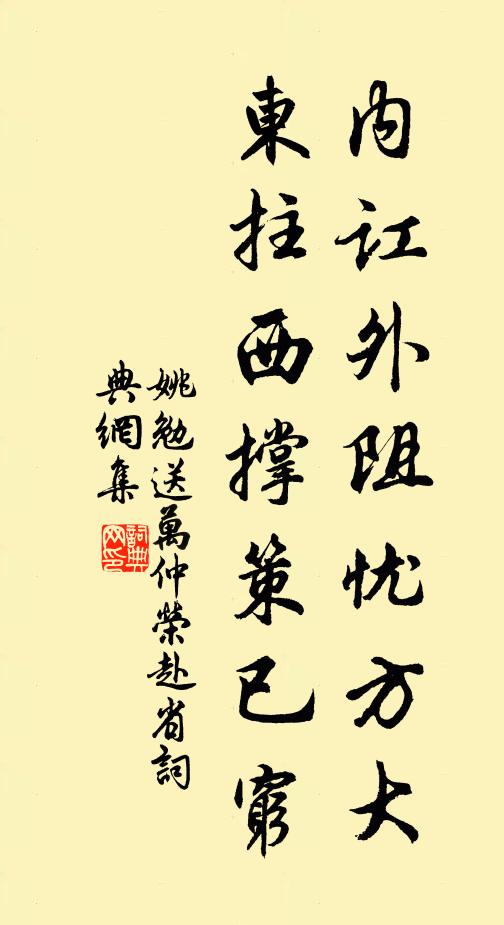 内讧外阻忧方大
東拄西撑策已窮
姚勉送萬仲榮赴省詞
典網集
詞典網印